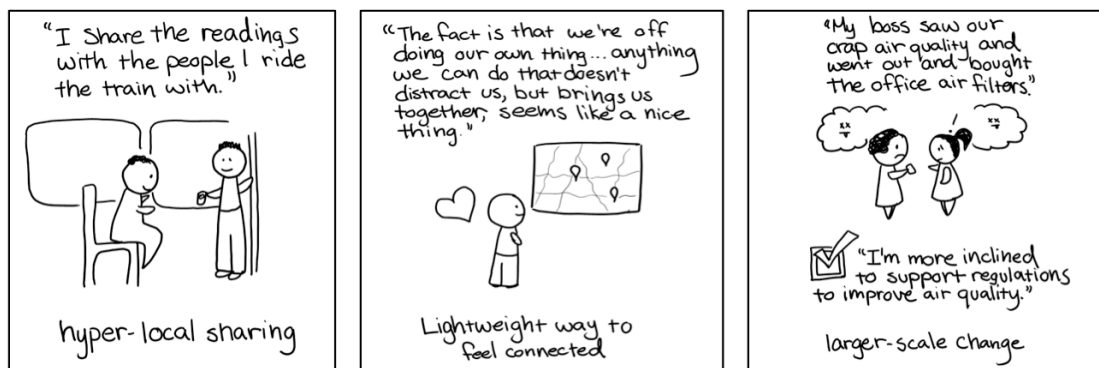 "I share the readings
with the people I ride
the train with."
hyper-local sharing
"The fact is that we're off
doing our own thing... anything
we can do that doesn't
distract us, but brings us
together, seems like a nice
thing."
Lightweight way to
feel connected
"My boss saw our
crap air quality and
went out and bought
the office air filters."
xx
xx
"I'm more inclined
to support regulations
to improve air quality."
larger-scale change